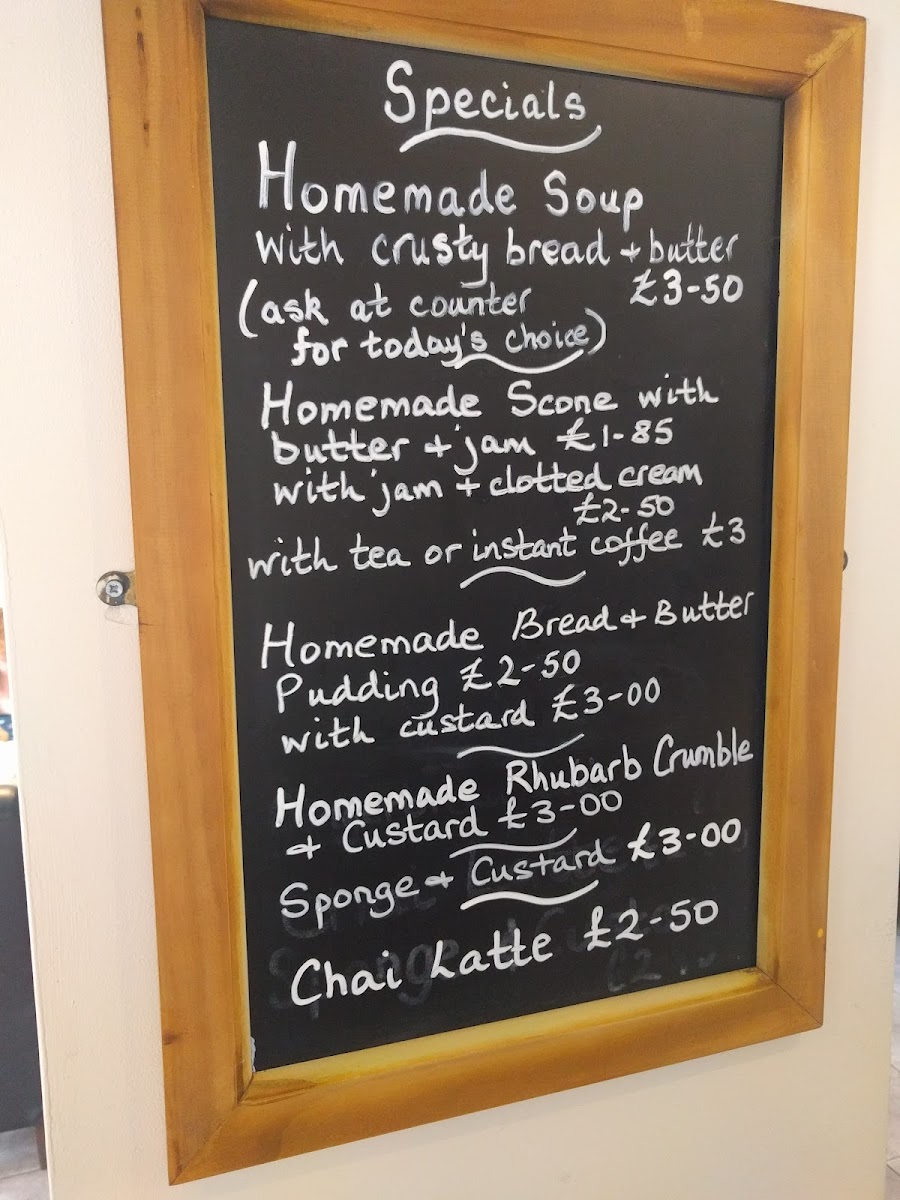 Specials
Homemade Soup
with crusty bread + butter
£3-50
(ask at counter
for today's choice)
Homemade Scone with
butter + jam £1-85
with jam + clotted cream
£2-50
with tea or instant coffee £3
Homemade Bread + Butter
Pudding £2-50
with custard £3-00
Homemade Rhubarb Crumble
+ Custard £3-00
Sponge + Custard £3-00
Chai Latte £2-50